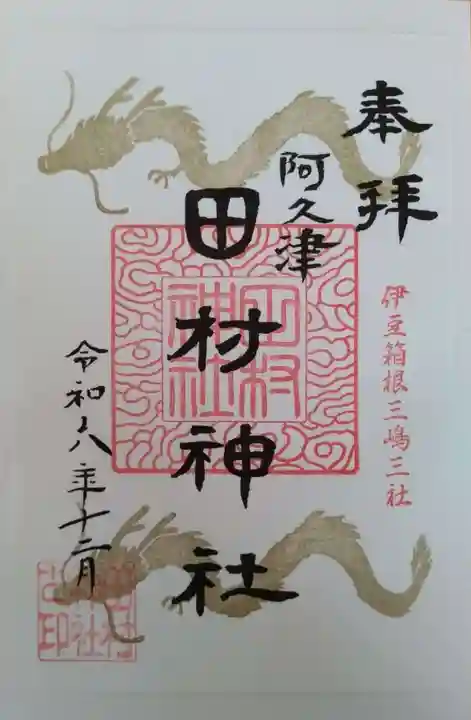 奉拝
伊豆箱根三嶋三社
阿久津
田村神社
田村神社
令和六年十二月